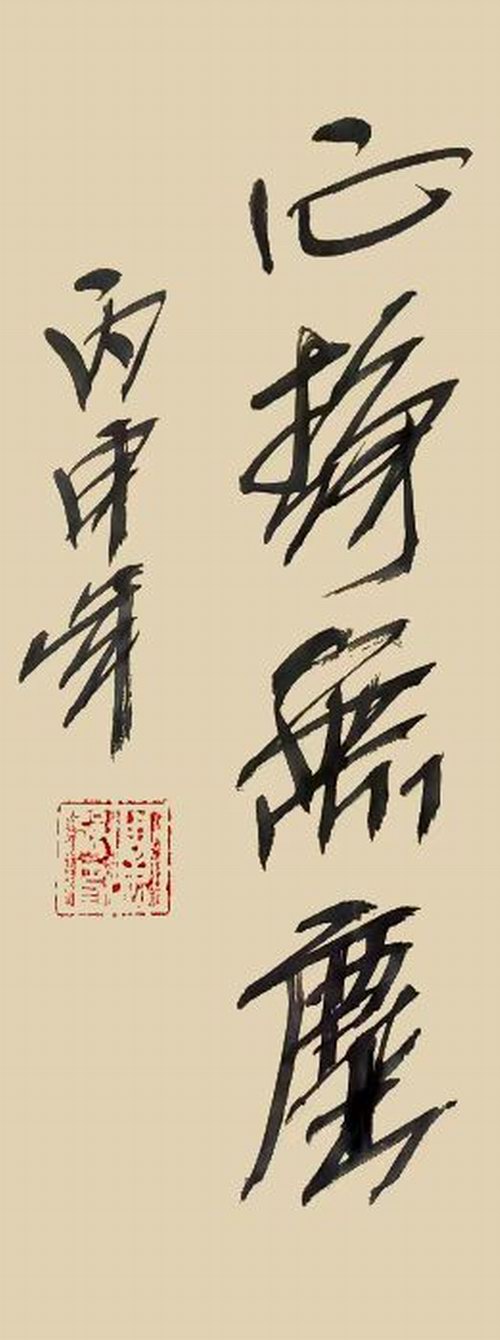 心静無塵
丙申年